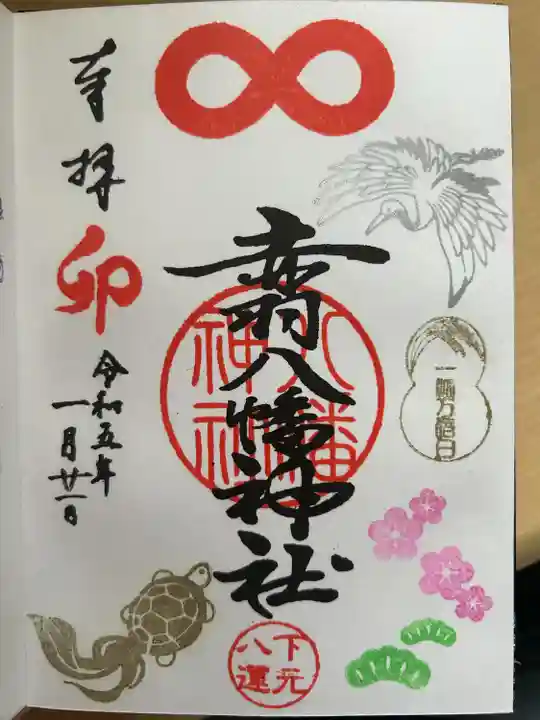 奉拝
卯
令和五年
一月廿一日
八幡神社
八幡
神社
一粒万倍日
下元
八運